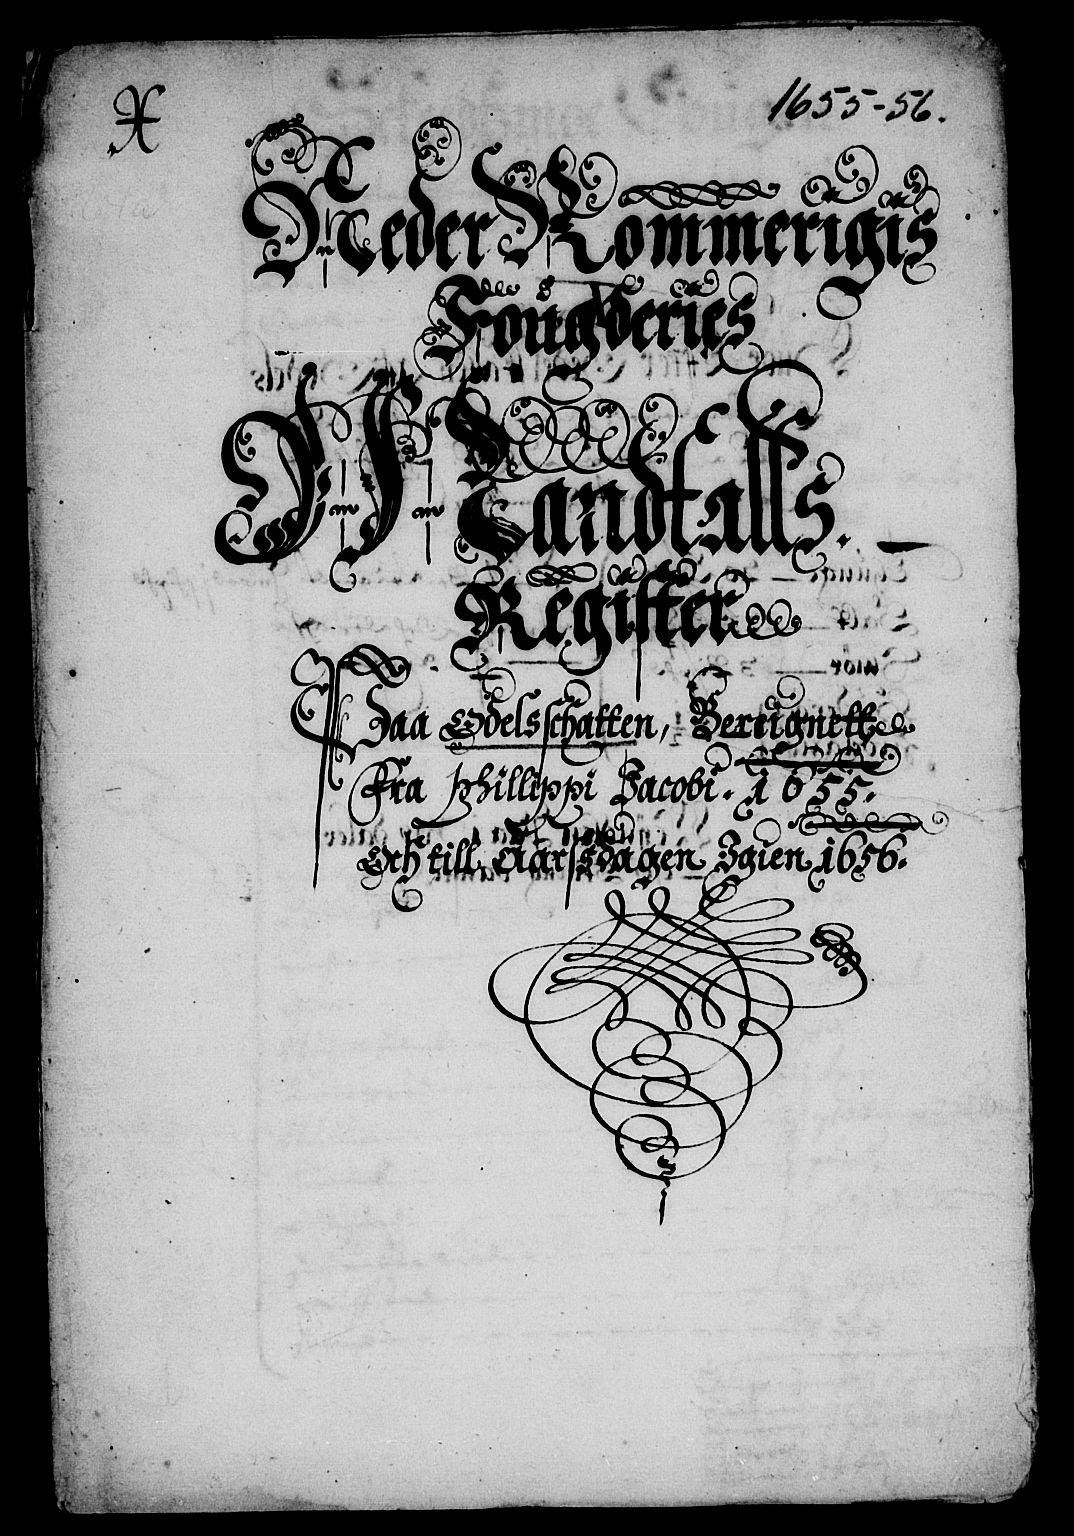 1655-56.
Neder Rommerigis
Fougderies
Mandtalls.
Register
Paa Odelsschatten, Beriignett
Fra Phillippi Jacobi. 1655.
Och till Aarsdagen Igien 1656.